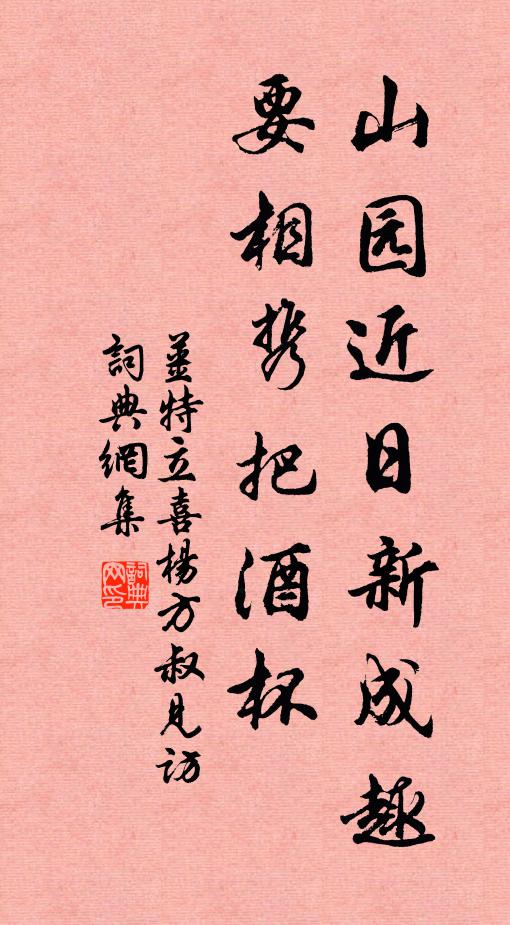 山园近日新成趣
要相携把酒杯
姜特立喜楊方叔見訪
詞典網集
詞典網印